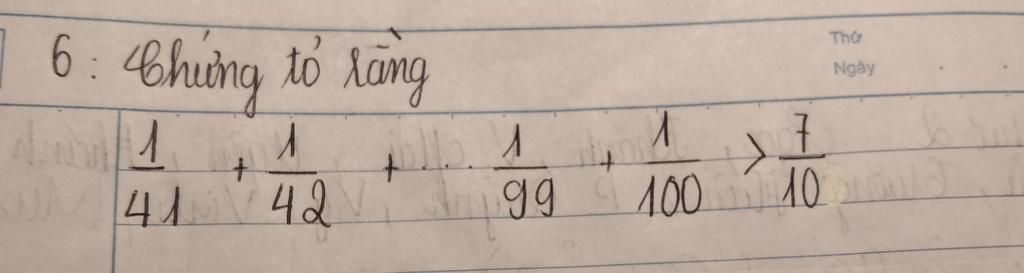 6: Chứng tỏ rằng
Thứ
Ngày
1/41 + 1/42 + ... 1/99 + 1/100 > 7/10